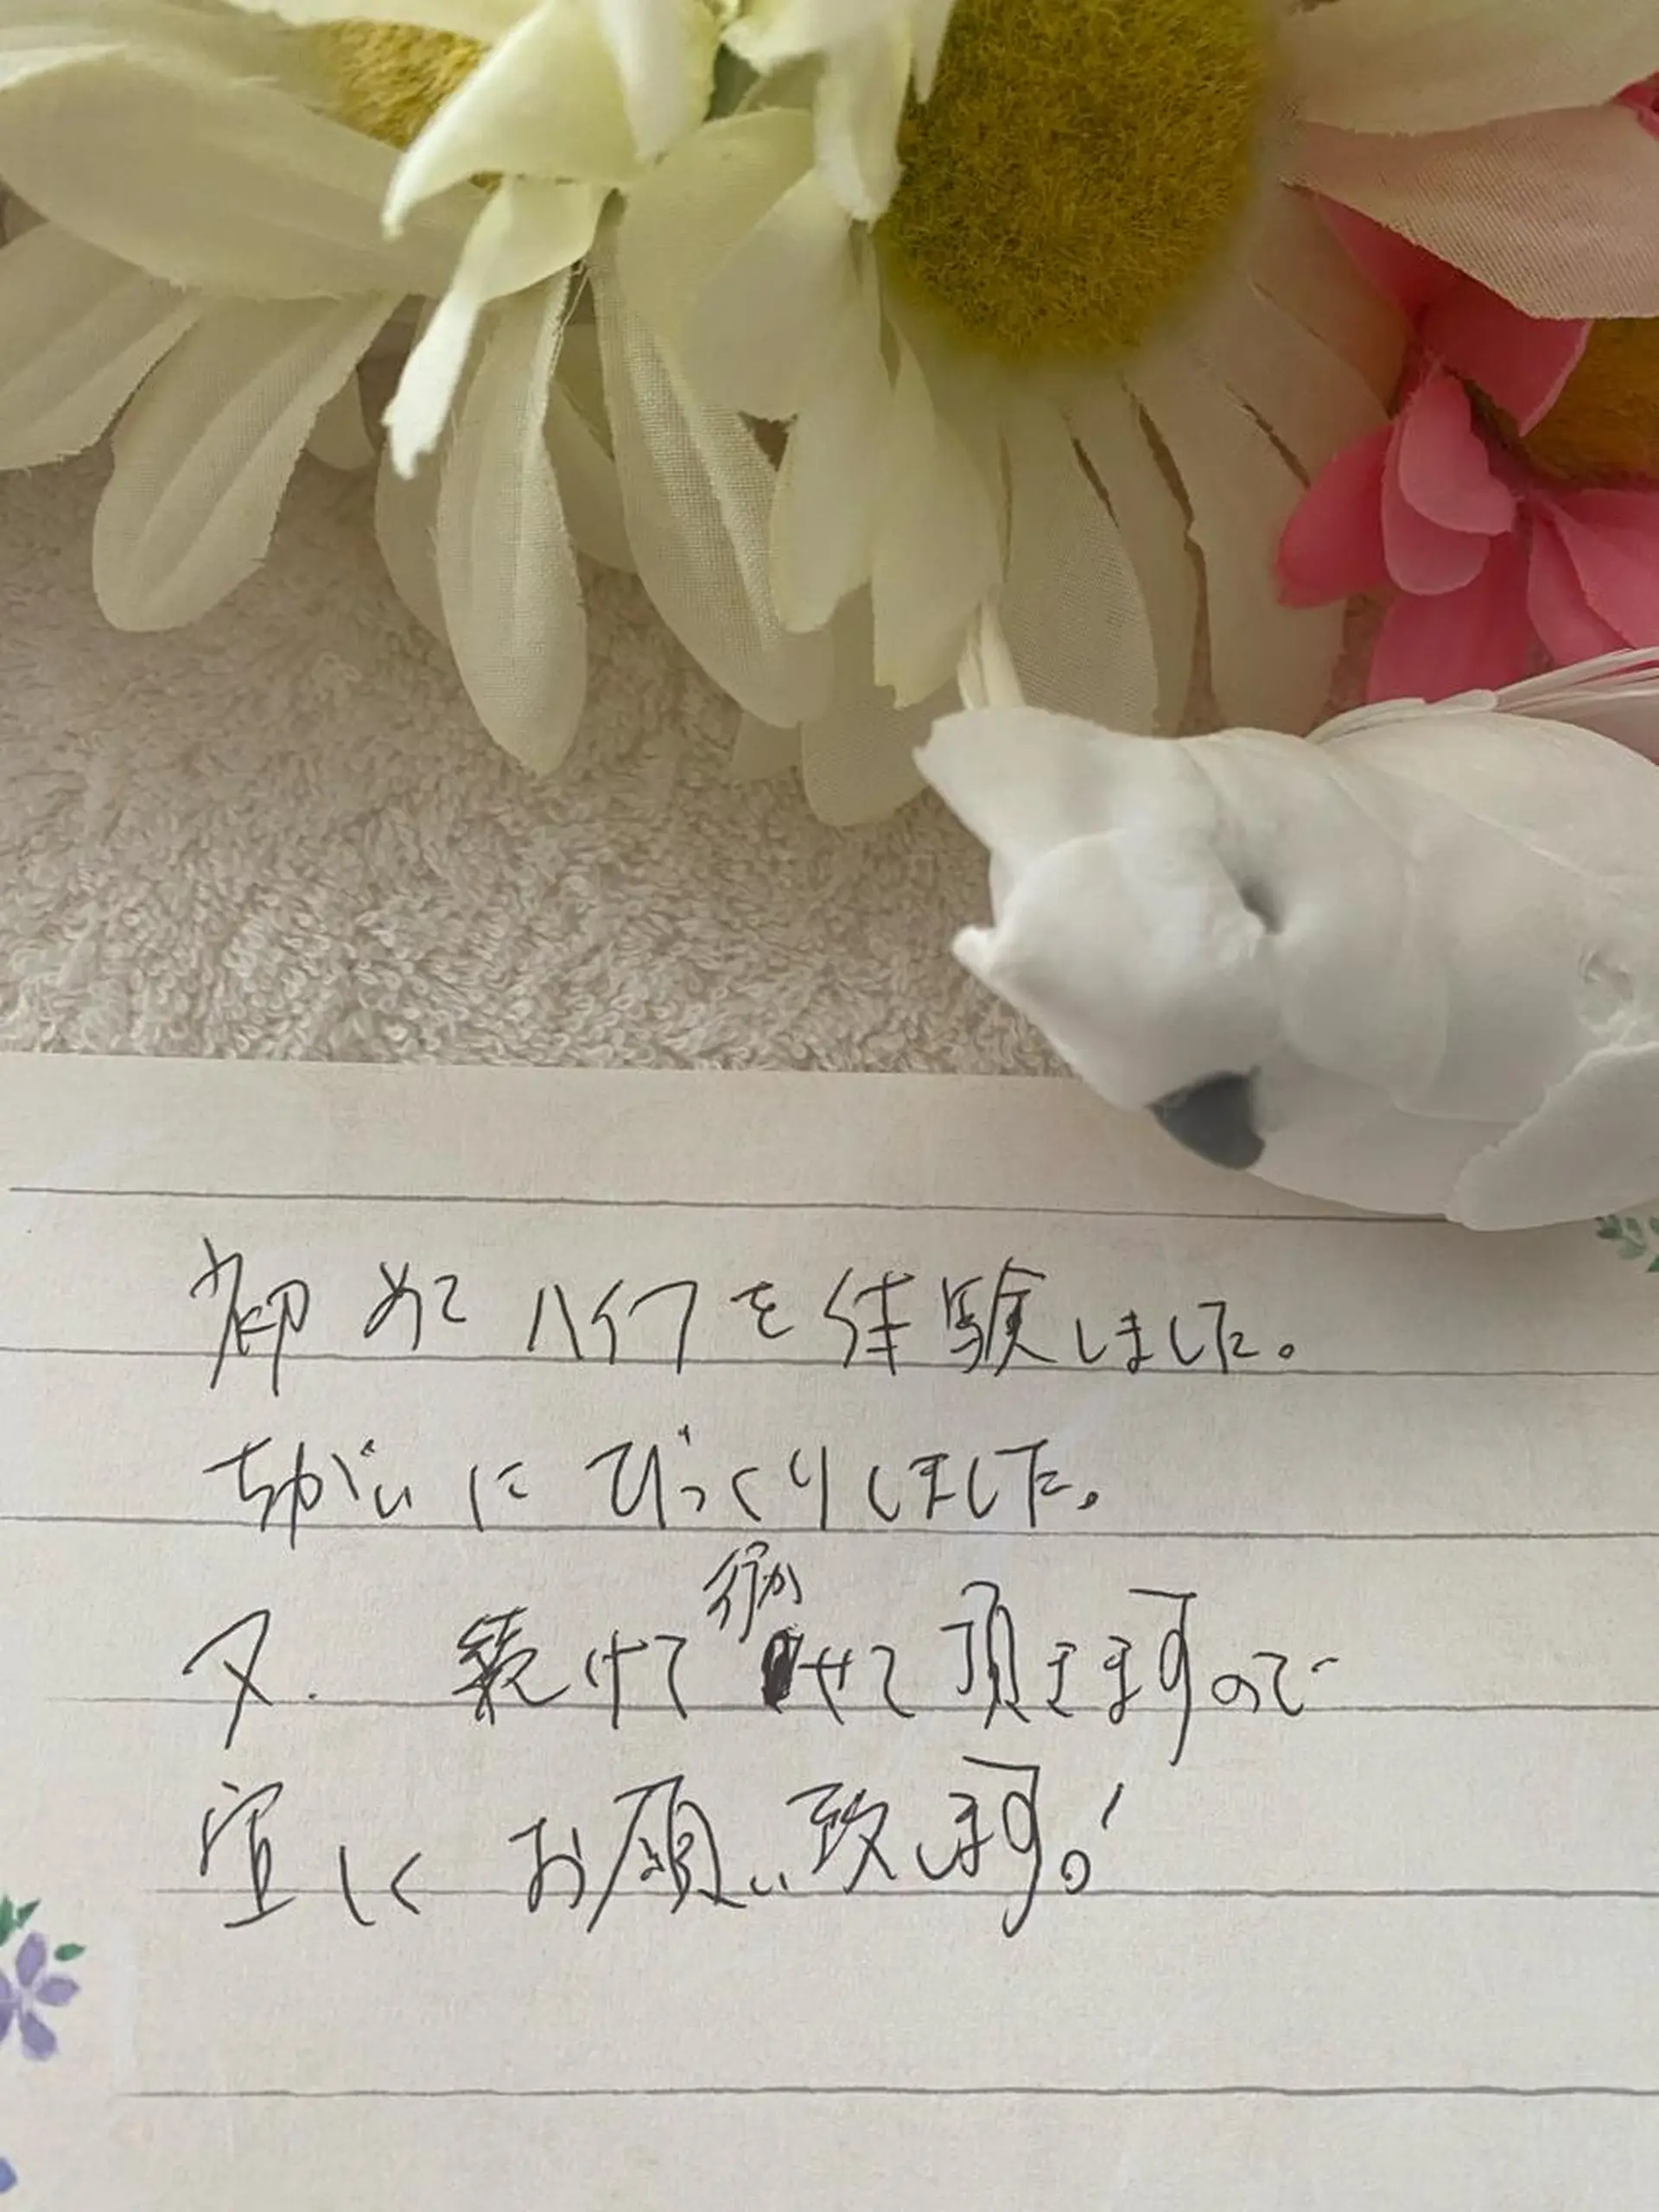 初めてハイフを体験しました。
ちがいにびっくりしました。
又、続けて行かせて頂きますので
宜しくお願い致します。!